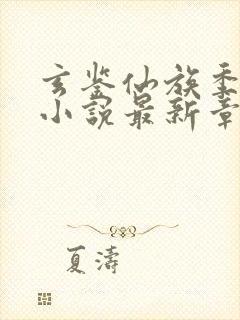 玄鉴仙族季
小说最新章
夏濤